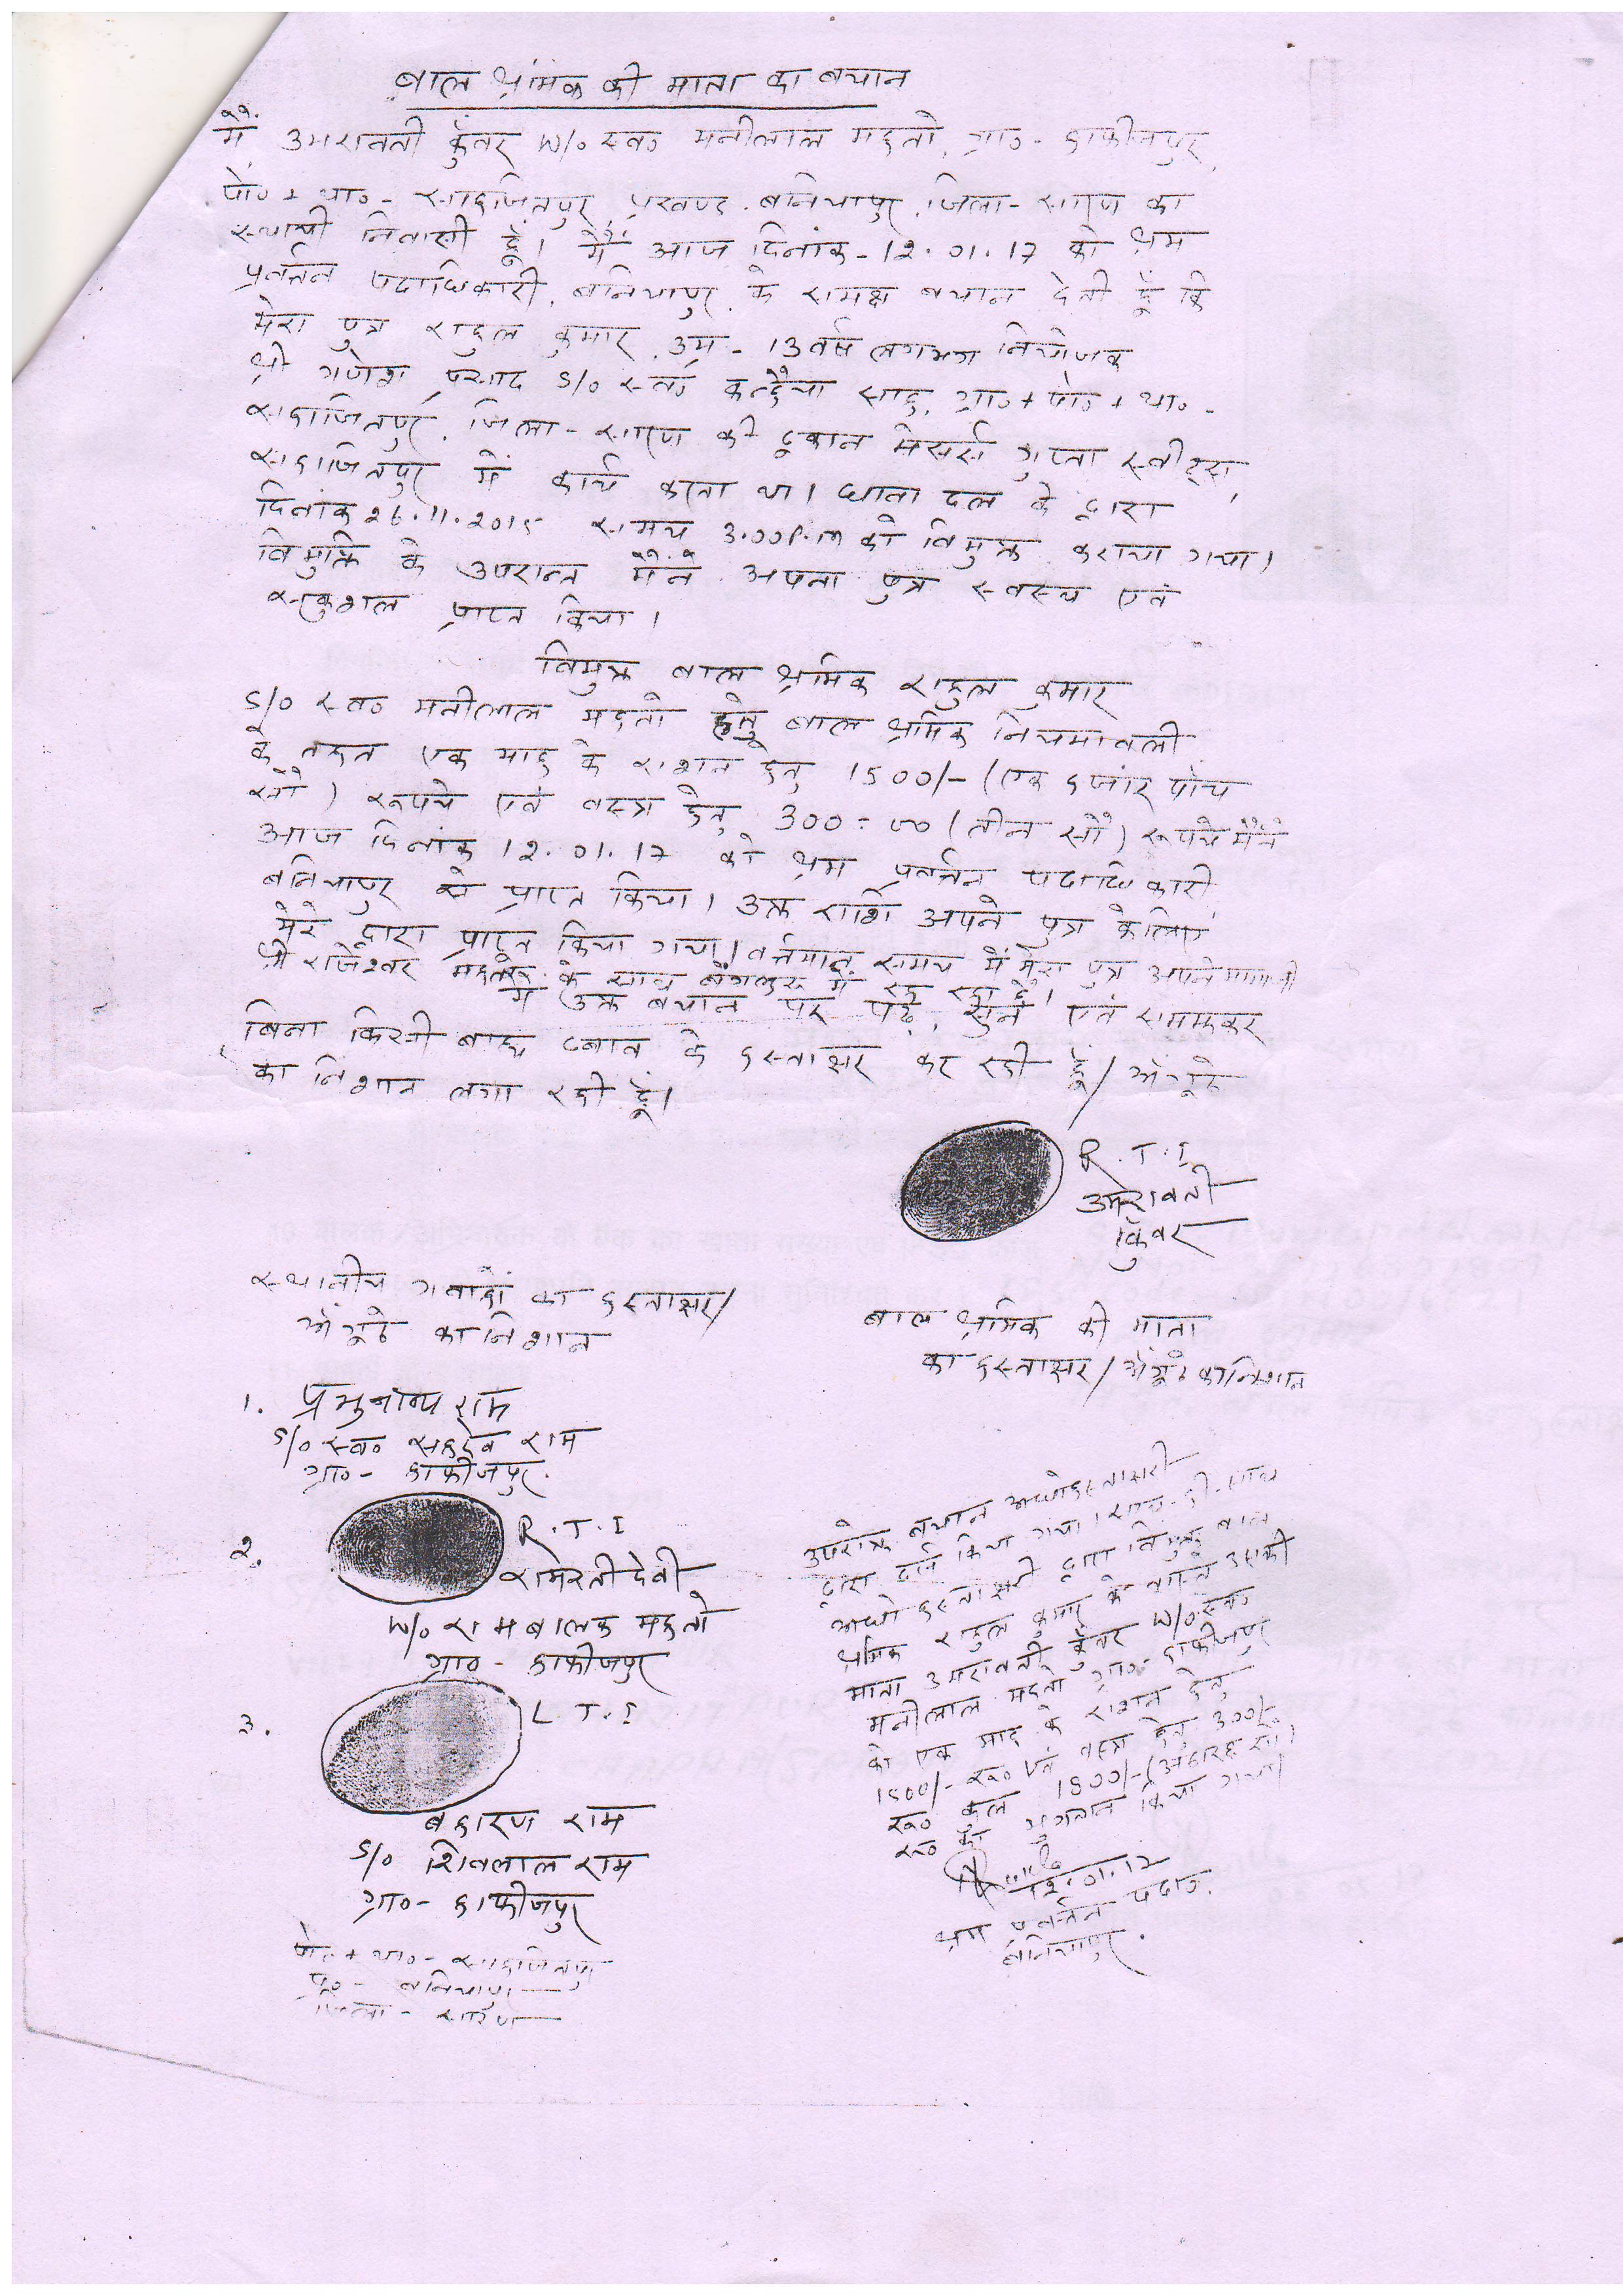 बाल श्रमिक की माता का बयान
मैं उमरावती कुँवर W/o स्व० मनीलाल महतो, ग्रा०- हाफीजपुर,
पो० + था० - सहाजितपुर, प्रखण्ड - बनियापुर, जिला - सारण का
स्थायी निवासी हूँ। मैं आज दिनांक - 12.01.17 को श्रम
प्रवर्त्तन पदाधिकारी, बनियापुर के समक्ष बयान देती हूँ कि
मेरा पुत्र राहुल कुमार, उम्र - 13 वर्ष लगभग नियोजक
श्री गणेश प्रसाद S/o स्व० कन्हैया साह, ग्रा० + पो० + था० -
सहाजितपुर, जिला - सारण की दूकान मेसर्स गुप्ता स्वीट्स,
सहाजितपुर में कार्य करता था। धावा दल के द्वारा
दिनांक 26.11.2015 समय 3.00 P.m को विमुक्त कराया गया।
विमुक्ति के उपरान्त मैंने अपना पुत्र स्वस्थ एवं
सकुशल प्राप्त किया।
विमुक्त बाल श्रमिक राहुल कुमार
S/o स्व० मनीलाल महतो हेतु बाल श्रमिक नियमावली
के तहत एक माह के राशन हेतु 1500/- (एक हजार पाँच
सौ) रूपये एवं वस्त्र हेतु 300=00 (तीन सौ) रूपये मैंने
आज दिनांक 12.01.17 को श्रम प्रवर्त्तन पदाधिकारी
बनियापुर से प्राप्त किया। उक्त राशि अपने पुत्र के लिए
मेरे द्वारा प्राप्त किया गया। वर्त्तमान समय में मेरा पुत्र अपने
श्री राजेश्वर महतो के साथ बेंगलुरू में रह रहा है।
मैं उक्त बयान पर पढ़, सुन एवं समझकर
बिना किसी बाह्य दबाव के हस्ताक्षर कर रही हूँ/अँगूठे
का निशान लगा रही हूँ।
R.T.I
उमरावती
कुँवर
स्थानीय गवाहों का हस्ताक्षर/
अँगूठे का निशान
बाल श्रमिक की माता
का हस्ताक्षर/अँगूठे का निशान
1. प्रभुनाथ राम
S/o स्व० सहदेव राम
ग्रा०- हाफीजपुर.
2. R.T.I
रामरती देवी
W/o रामबालक महतो
ग्रा० - हाफीजपुर
3. L.T.I
बहारण राम
S/o शिवलाल राम
ग्रा०- हाफीजपुर
पो० + था०- सहाजितपुर
प्र०- बनियापुर
जिला - सारण
उपरोक्त बयान अधोहस्ताक्षरी
द्वारा दर्ज किया गया। साथ-ही-साथ
अधोहस्ताक्षरी द्वारा विमुक्त बाल
श्रमिक राहुल कुमार के वास्ते उसकी
माता उमरावती कुँवर W/o स्व०
मनीलाल महतो ग्रा०- हाफीजपुर
को एक माह के राशन हेतु
1500/- रू० एवं वस्त्र हेतु 300/-
रू० कुल 1800/- (अठारह सौ)
रू० का भुगतान किया गया।
12.01.17
श्रम प्रवर्त्तन पदा०
बनियापुर.